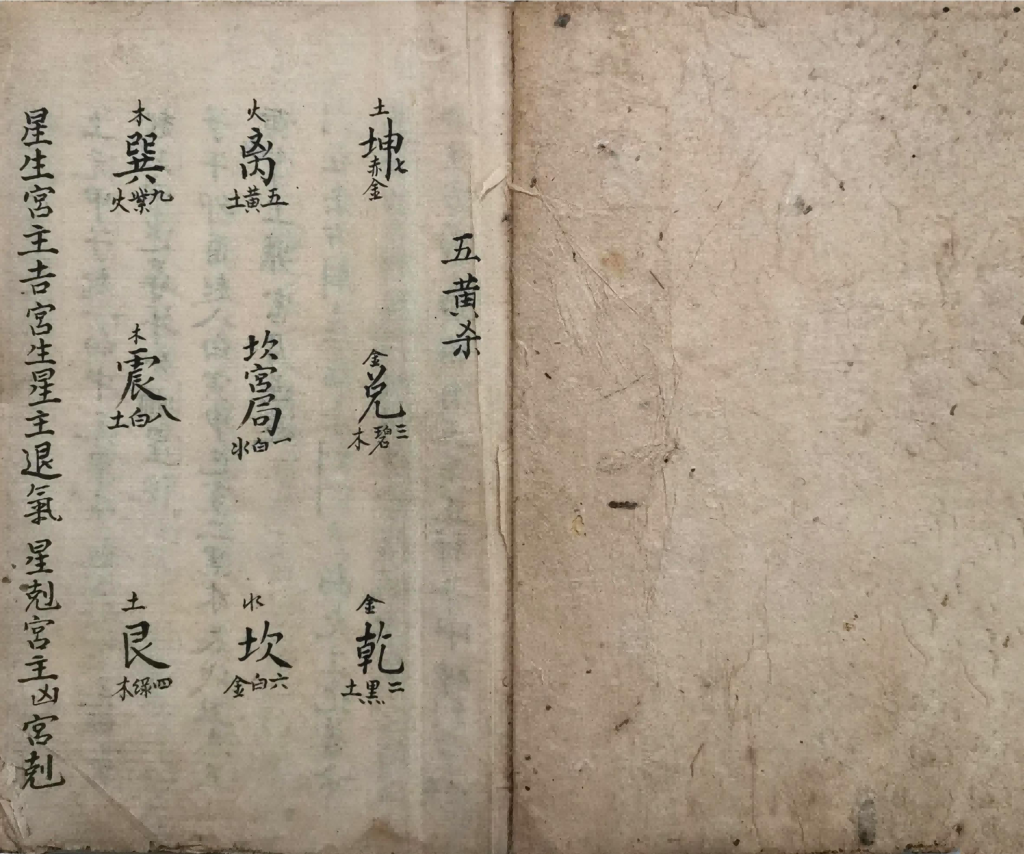 五黄杀
土
坤
七赤金
金
兑
三碧木
金
乾
二黑土
火
离
五黄土
坎宫局
一白水
水
坎
六白金
木
巽
九紫火
木
震
八白土
土
艮
四绿木
星生宫主吉宫生星主退氣星尅宫主凶宫尅